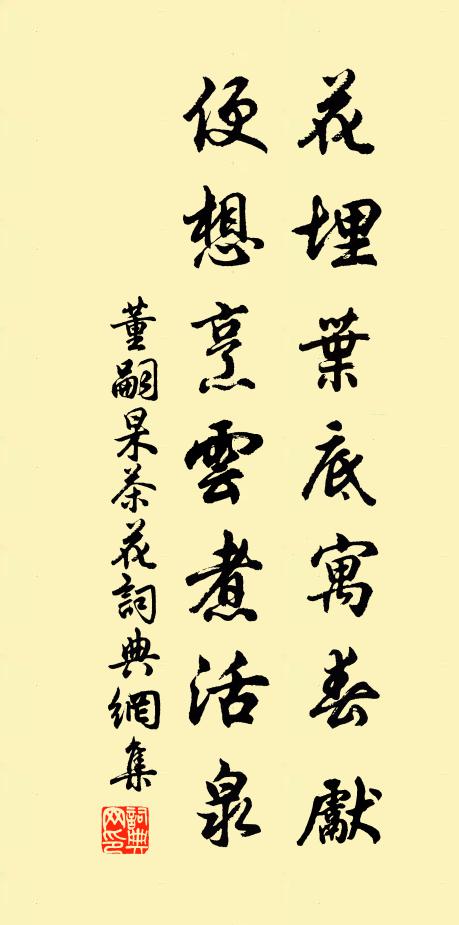 花埋葉底寓春獻
便想烹雲煮活泉
董嗣杲茶花詞典網集
詞典网印